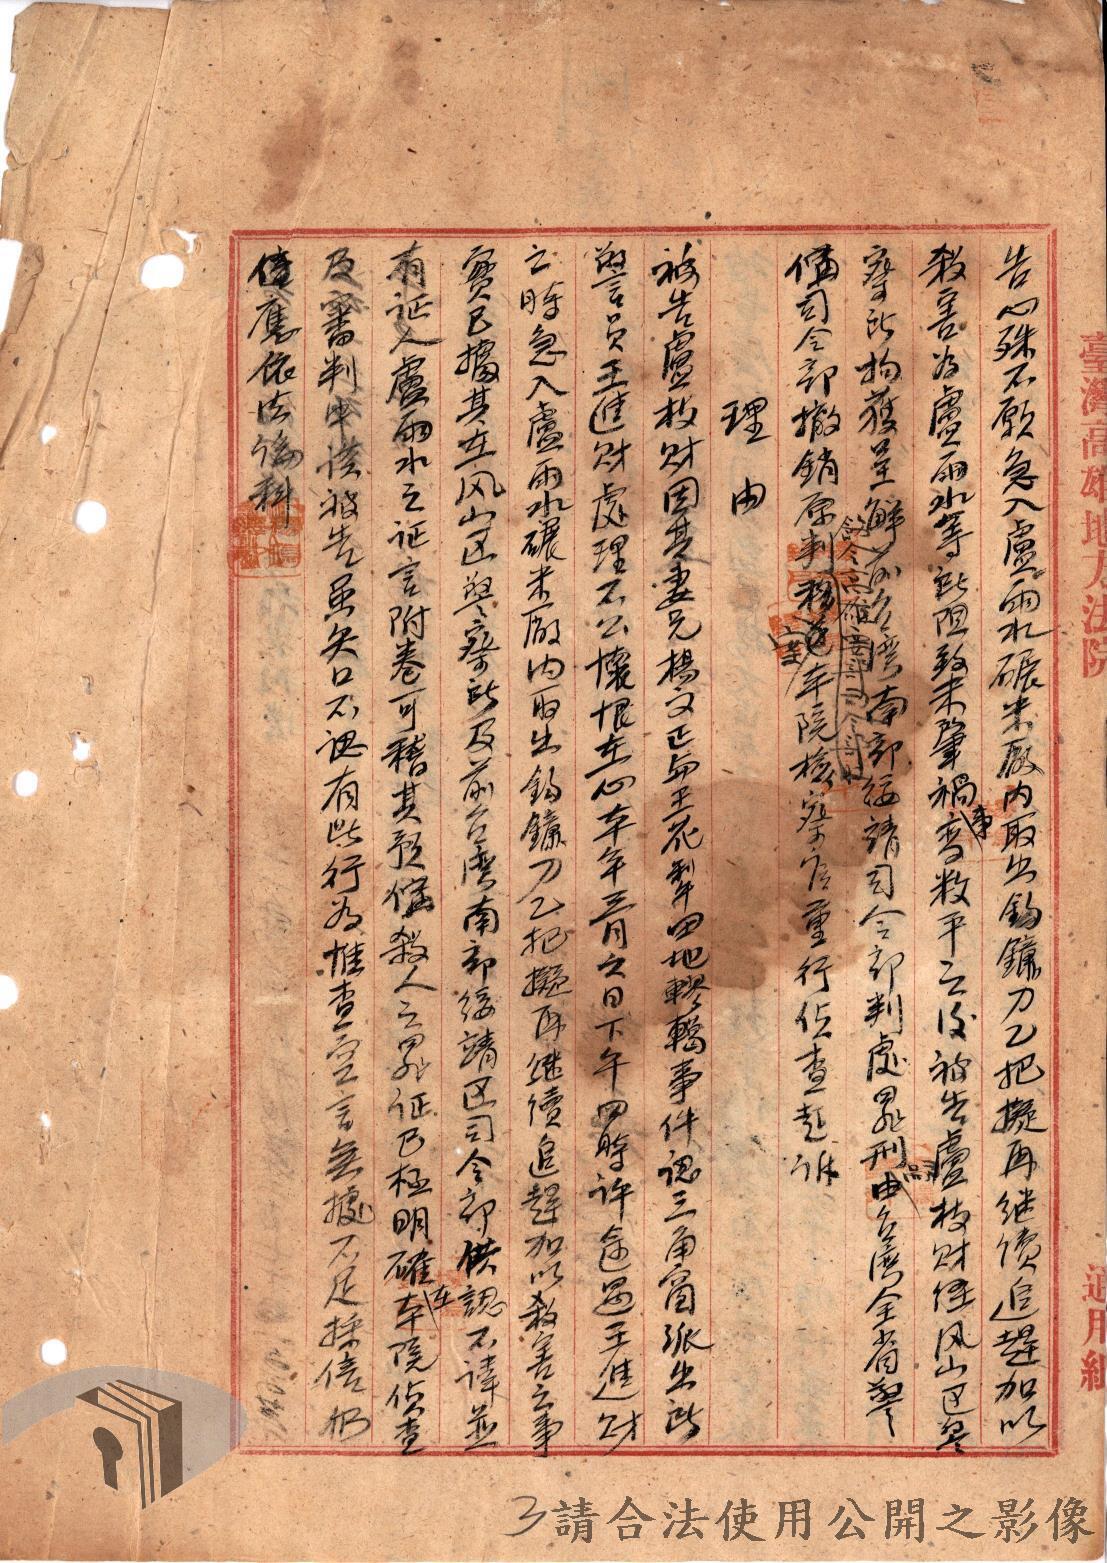 臺灣高雄地方法院
通用紙
告心殊不願急入盧雨水碾米廠內取出鈎鐮刀乙把擬再繼續追趕加以
殺害為盧雨水等所阻致未肇禍事變敉平之後被告盧枝財經风山区警
察所拘獲呈解前台湾南部綏靖司令部判處罪刑由台湾全省警
備司令部撤銷原判移送本院檢察官重行侦查起訴
理由
被告盧枝財因其妻兄楊文正與王花犁田地轕事件認三角窗派出所
警員王進財處理不公懷恨在心本年三月六日下午四時許途遇王進財
之時急入盧雨水碾米廠內取出鈎鐮刀乙把擬再继續追趕加以殺害之事
實已據其在风山区警察所及前台湾南部綏靖区司令部供認不諱並
有证人盧雨水之证言附卷可稽其預備殺人之罪证已極明確在本院侦查
及審判中被告虽矢口不認有此行為惟查空言無據不足採信仍
應依法論科
3
請合法使用公開之影像